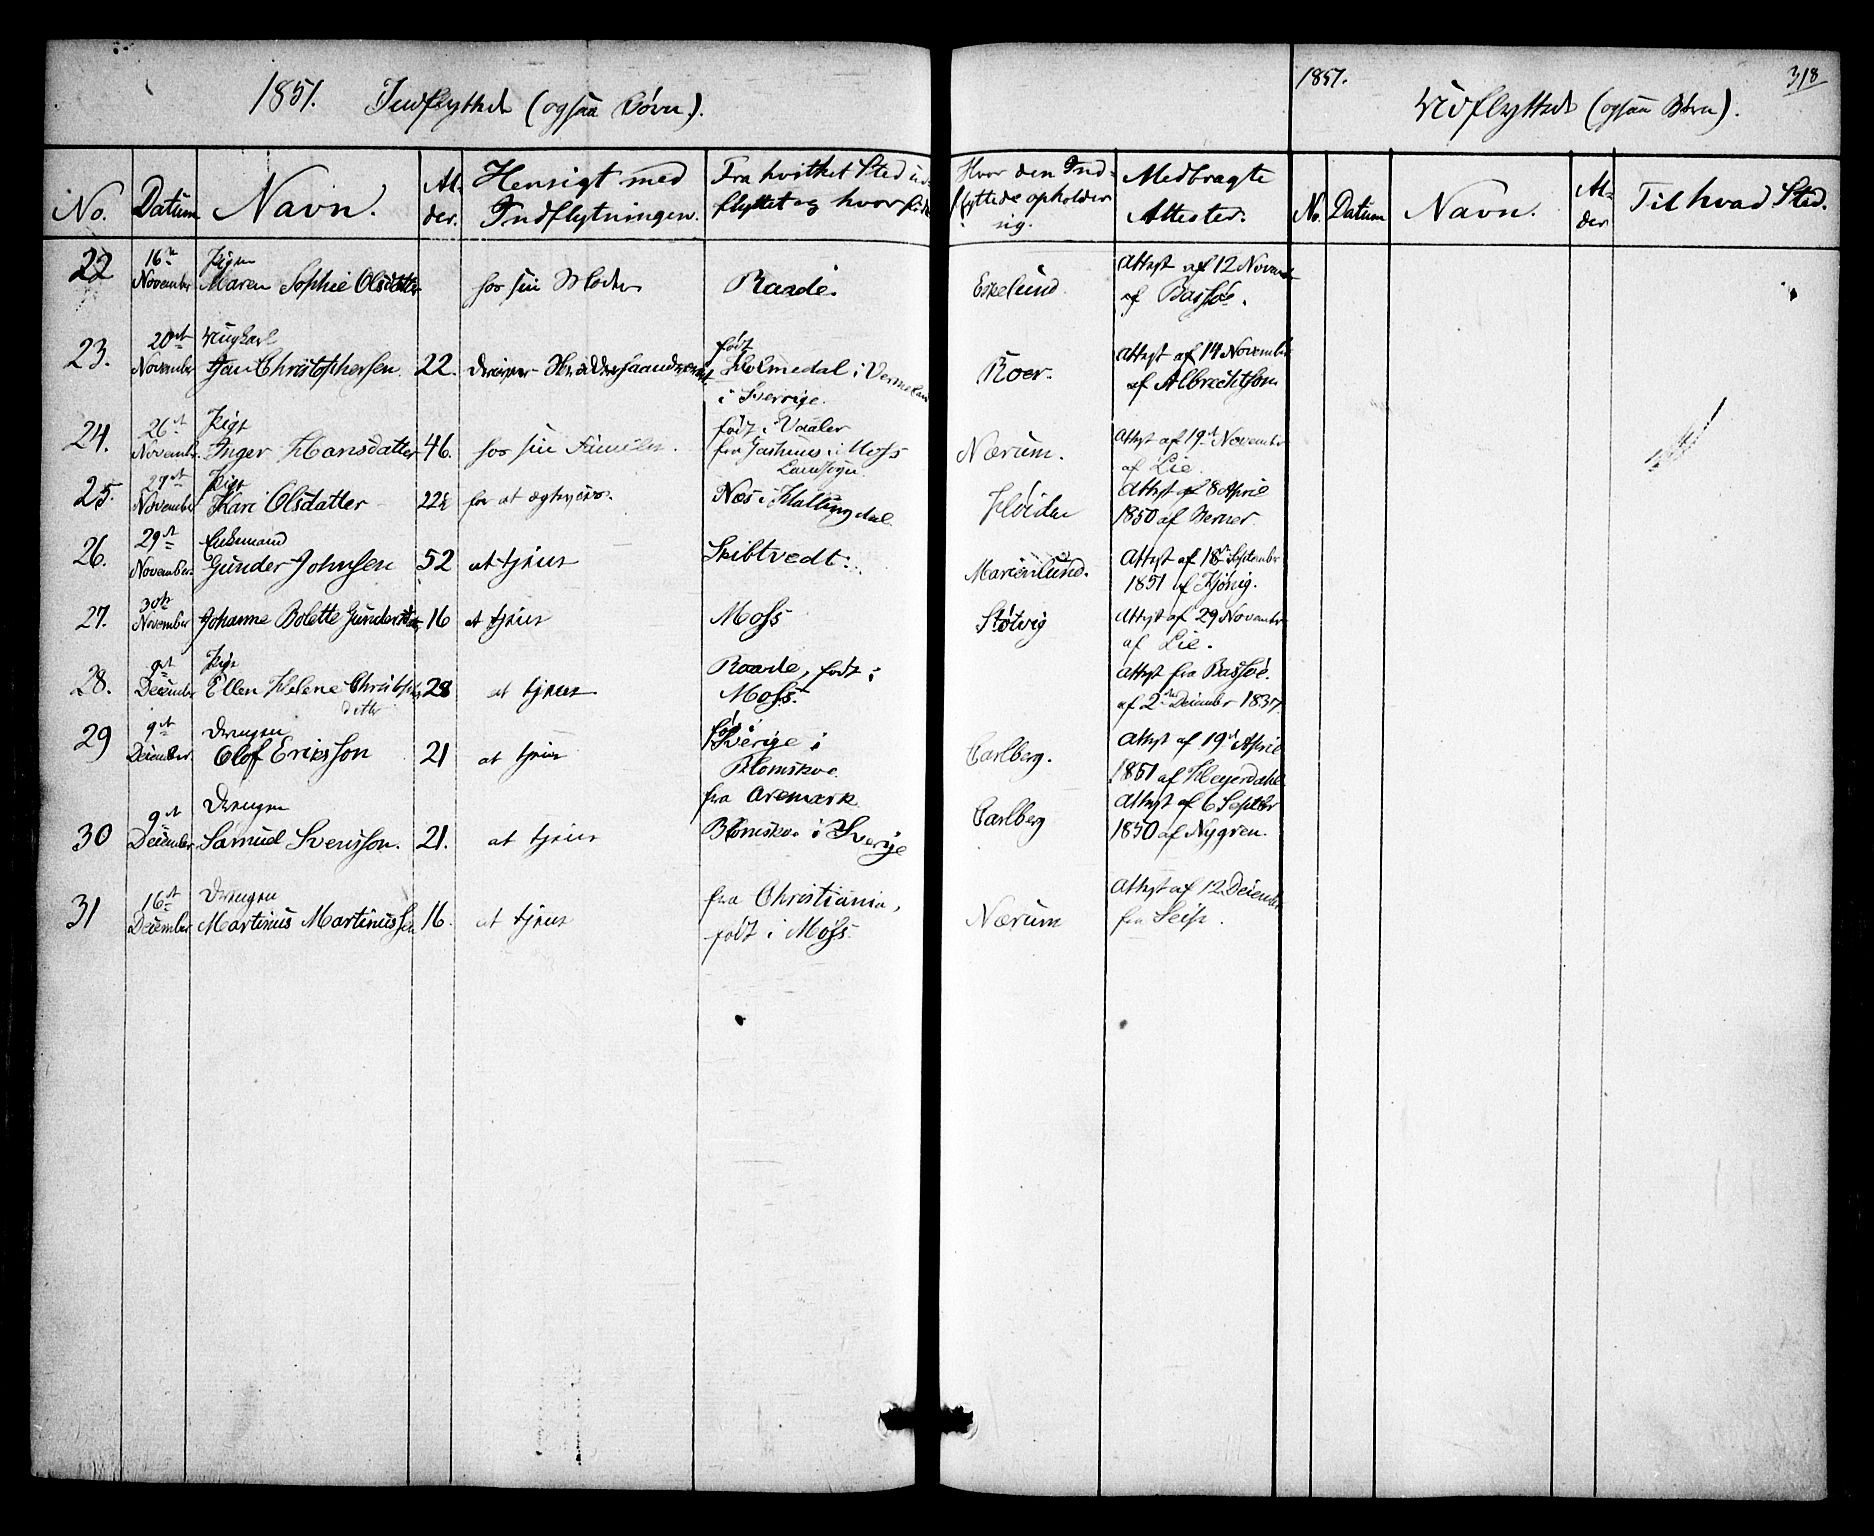 1851. Indflyttede (ogsaa Børn).
No. Datum Navn. Al-der. Hensigt med Indflytningen. Fra hvilket Sted ud-flyttet og hvor født Hvor den Ind-flyttede opholder sig. Medbragte Attester.
22 16de November Pigen Maren Sophie Olsdatter hos sin Moder Raade. Eskelund Attest af 12 Novemb af Bassøe.
23. 20de November Ungkarl Christophersen 22. født Holmedal i Vermeland i Sverrige. Roer. Attest af 14 November af Albrechtson
24. 26de November Pige Inger Hansdatter 46. hos sin Familie. født i Vaaler fra i Moss Landsogn Nærum. Attest af 19de November af Lie.
25. 27de November Pige Kari Olsdatter 22½ for at ægtevies. Næs i Hallingdal Høiden Attest af 8 April 1850 af Berner.
26. 29de November. Enkemand Gunder Johnsen 52 at tjene Skibtvedt. Marienlund. Attest af 18de September 1851 af Kjønig.
27. 30te November Johanne Bolette Gundersdatter 16 at tjene Moss Støtvig Attest af 29 November af Lie.
28. 9de December Pige Ellen Helene Christophersdatter 28 at tjene Raade, født i Moss. Attest fra Bassøe. af 2den December 1837.
29 9de December. Drengen Olof Eriksson 21 at tjene født i Sverige i Blomskoe fra Aremark Carlberg. Attest af 19de April 1851 af Heyerdahl
30 9de December Drengen Samuel Svensson. 21. at tjene Blomskoe i Sverige Carlberg Attest af 6 Septbr 1850 af Nygren.
31 16de December Drengen Martinus Martinussen 16. at tjene fra Christiania, født i Moss. Nærum Attest af 12 December fra
1851. 318
Udflyttede (ogsaa Børn).
No. Datum Navn. Al-der Til hvad Sted.